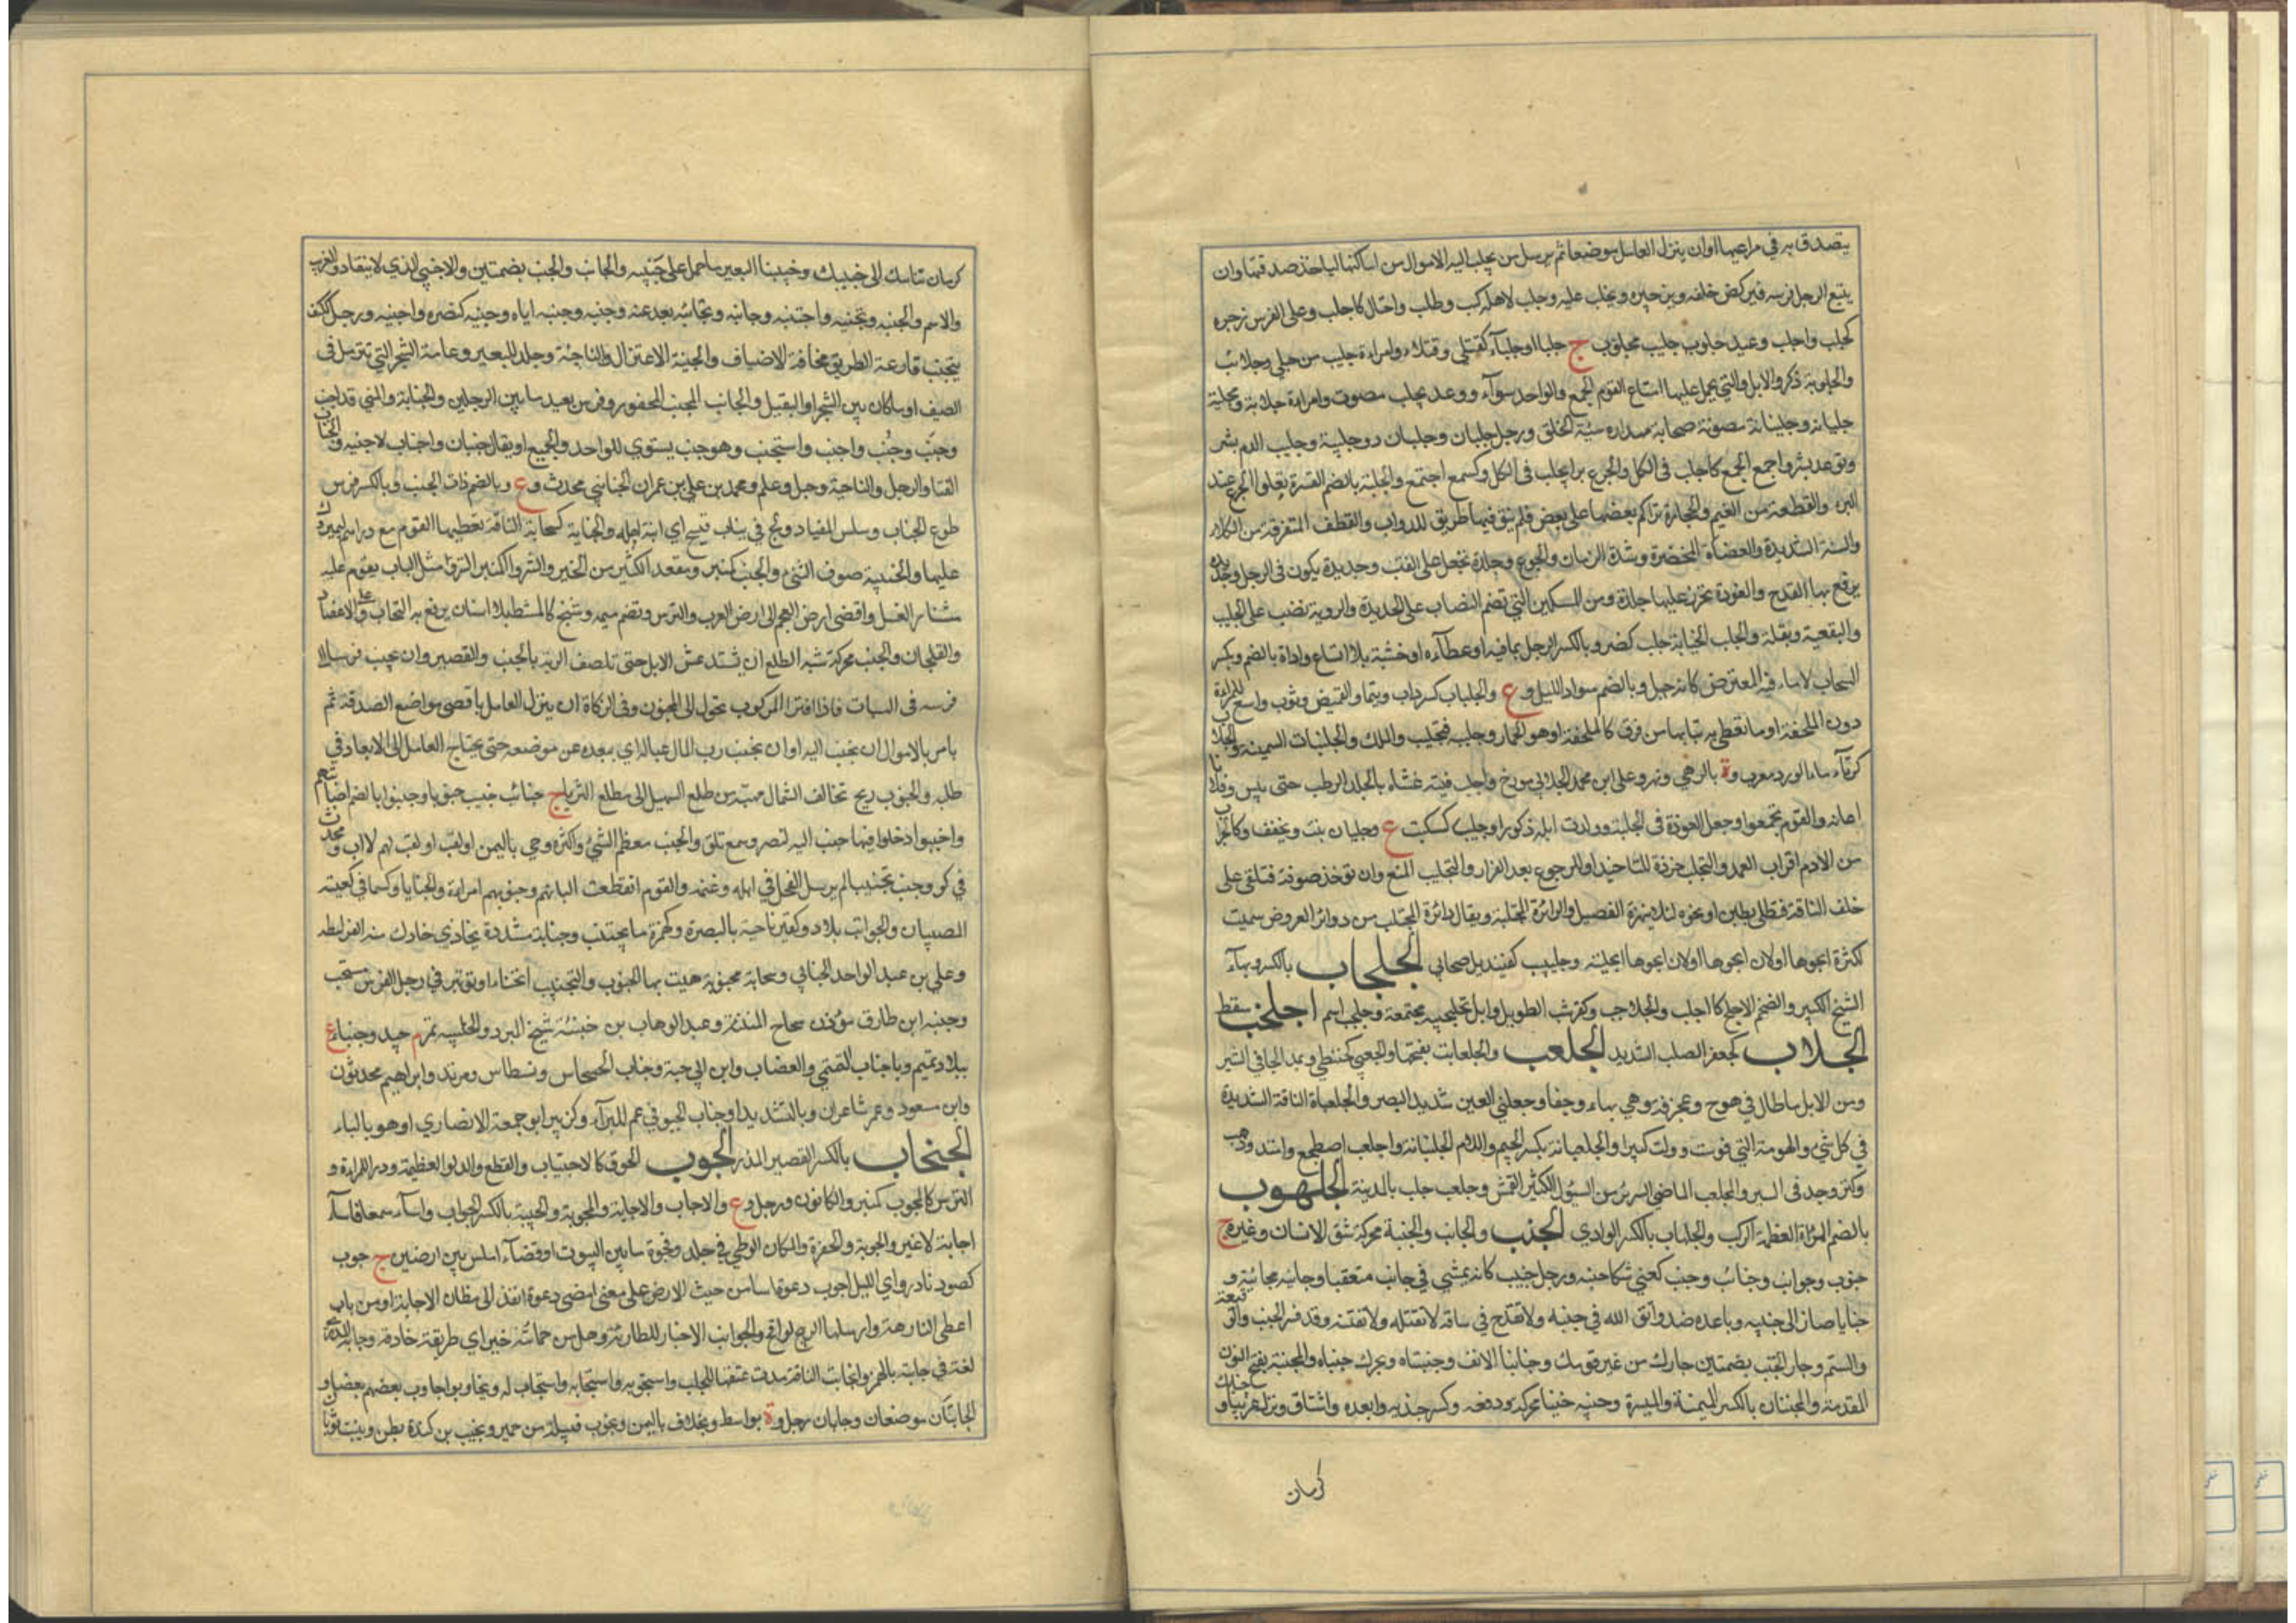 يتصدق به في مراعيها او ان ينزل العامل موضعا ثم يرسل من يجلب اليه الاموال من اماكنها لياخذ صدقتها وان
يتبع الرجل فرسه فيركض خلفه ويزجره ويجلب عليه وجلب لاهله كسب وطلب واحتال كاجلب وعلى الفرس زجره
كجلب واجلب وعبد جليب مجلوب ج جلبا او جلبآء كقتلى وقتلاء وامراءة جليب من جلبى وجلائب
والجلوبة ذكور الابل والتي يحمل عليها امتاع القوم الجمع والواحد سوآء ورعد مجلب مصوت وامراءة جلابة ومجلبة
جلبانة وجلبنانة مصوتة صخابة مهذاره سيئة الخلق ورجل جلبان وجلبان ذو جلبة وجلب الدم يبس
وتوعد بشر واجمع الجمع كاجلب في الكل والجرح برا يجلب في الكل وكسمع اجتمع والجلبة بالضم القشرة تعلو الجرح عند
البرء والقطعة من الغيم والحجارة تراكم بعضها على بعض فلم يبق فيها طريق للدواب والقطف المتفرقة من الكلاء
والسنة الشديدة والعضاة المخضرة وشدة الزمان والجوع وجلدة تجعل على القتب وحديدة يكون في الرجل وحديدة
يرقع بها القدح والعوذة تخرز عليها جلدة ومن السكين التي تضم النصاب على الحديدة والروبة تصب على الحليب
والبقعة وبقلة والجلب الجناية جلب كنصر وبالكسر الرحل بما فيه او غطآءه او خشبه بلا انساع واداة بالضم وبكسر
السحاب لا ماء فيه المعترض كانه جبل وبالضم سواد الليل وع والجلباب كسرداب وسنمار القميص وثوب واسع للمراءة
دون الملحفة او ما تغطى به ثيابها من فوق كالملحفة او هو الخمار وجلببه فتجلبب والملك والجلنباة السمينة والجلاب
كزنار ماء الورد معرب وة بالرهى ونهر وعلى ابن محمد الجلابي مورخ واجلب قتبه غشاه بالجلد الرطب حتى يبس وفلانا
اعانه والقوم تجمعوا وجعل العوذة في الجلبة وولدت ابله ذكورا وجليب كسكيت ع وجلبان بنت ويخفف وكالجراب
من الادم وقراب الغمد والتجلب خرزة للتاخيذ او للرجوع بعد الفرار والتجليب المنع وان تؤخذ صوفة فتلقى على
خلف الناقة فتطلى بطين او نحوه لئلا ينهزه الفصيل والدائرة المجتلبة ويقال دائرة المجتلب من دوائر العروض سميت
لكثرة ابحرها او لان ابحرها او لان ابحرها مجتلبة وجليبيب كقنيديل صحابي الجلحاب بالكسر وبهآء
الشيخ الكبير والضخم الاجلح كالجلحب والجلاحب وكقرشب الطويل وابل مجلحبة مجتمعة وجلحب اسم اجلخب سقط
الجلاب كجعفر الصلب الشديد الجلعب والجلعابة بفتحها والجعبى كحنطى ويمد الجافي الشرير
ومن الابل ما طال في هوج وعجرفة وهي بهاء وجفا وجعلبى العين شديد البصر والجلعباة الناقة الشديدة
في كل شيء والهرمة التي قوست وولت كبرا والجلعبانة بكسر الجيم واللام الجلبانة واجلعب اضطجع وامتد وذهب
وكثر وجد في السير والمجلعب الماضي الشرير من السيول الكثير القمش وجلعب جبل بالمدينة الجلهوب
بالضم المراءة العظيمة الركب والجلهاب بالكسر الوادي الجنب والجانب والجنبة محركة شق الانسان وغيره ج
جنوب وجوانب وجنائب وجنب كعنى شكا جنبه ورجل جنيب كانه يمشي في جانب متعقبا وجانبه مجانبة و
جنابا صار الى جنبه وباعده ضد واتق الله في جنبه ولا تقدح في ساقه لا تقتله ولا تفتنه وقد فسر الجنب والق
والشتم وجار الجنب بضمتين جارك من غير قومك وجنابا الانف وجنبتاه ويحرك جنباه والمجنبة بفتح النون
المقدمة والمجنبتان بالكسر الميمنة والميسرة وجنبه جنبا محركة ودفعه وكسر جنبه وابعده واشتاق ونزل غريبا و
كرمان
كرمان تناسك الى جنبك وجنبنا البعير ما حمل على جنبيه والجانب والجنب بضمتين والاجنبي الذي لا ينقاد والغريب
والاسم والجنبة وتجنبه واجتنبه وجانبه وتجانبه بعد عنه وجنبه وجنبه اياه وجنبه كنصره واجنبه ورجل كتف
يتجنب قارعة الطريق مخافة الاضياف والجنبة الاعتزال والناحية وجلد للبعير وعامة الشجر التي تتربل في
الصيف او ما كان بين الشجر والبقيل والجانب المجتنب المحقور وفرس بعيد ما بين الرجلين والجنابة والمنى قد اجنب
وجنب وجنب واجنب واستجنب وهو جنب يستوي للواحد والجميع او يقال جنبان واجناب لا جنبة والجناب
الفناء والرحل والناحية وجبل وعلم ومحمد بن علي بن عمران الجنابي محدث وع وبالضم ذات الجنب وبالكسر فرس
طوع الجناب وسلس القياد ولج في جناب قبيح اي مجانبة اهله والجنابة كسحابة الناقة تعطيها القوم مع دراهم ليميروك
عليها والجنيبة صوف الثنى والجنب كمنبر ومقعد الكثير من الخير والشر واكمنبر الترس مثل الباب يقوم عليه
مشتار العسل واقصى ارض العجم الى ارض العرب والترس وتضم ميمه وشبح كالمشط بلا اسنان يرفع به التراب على الاعضاد
والفلجان والجنب محركة شبه الظلع ان يشتد عطش الابل حتى تلصق الرية بالجنب والقصير وان يجنب فرسا الى
فرسه في السباق فاذا افتر المركوب تحول الى المجنوب وفي الزكاة ان ينزل العامل باقصى مواضع الصدقة ثم
يامر بالاموال ان تجنب اليه او ان يجنب رب المال بماله اي يبعده عن موضعه حتى يحتاج العامل الى الابعاد في
طلبه والجنوب ريح تخالف الشمال مهبه من مطلع السهيل الى مطلع الثريا ج جنائب جنبت جنوبا وجنبوا بالضم اصابتهم
واجنبوا دخلوا فيها جنب اليه كنصر وسمع قلق والجنب معظم الشيء واكثره وحي باليمن او لقب لهم لا اب ومحدث
في كوفي وجنب تجنيبا لم يرسل الفحل في ابله وغنمه والقوم انقطعت البانهم وجنوبهم امراءة والجنابا وكسمانى لعبة
للصبيان والجوانب بلاد وكقير ناحية بالبصرة وكهمزة ما يجتنب وجنابة مشددة يحاذي خارك منه القرامطة
وعلي بن عبد الواحد الجنابي وسحابة مجنوبة هبت بها الجنوب والتجنيب انحناء وتوتير في رجل الفرس مستحب
وجنبة ابن طارق مؤذن سجاح المتنبئة وعبد الوهاب بن جنبة شيخ المبرد والجليب تمر م جيد وجنباء ع
ببلاد تميم وباجناب القصبي والعضاب وابن ابي حية وجناب الحسحاس ونسطاس ومرثد وابراهيم محدثون
وابن مسعود وعمر شاعران وبالتشديد ابو جناب الجنوفي عم للبرآء وكزبير ابو جمعة الانصاري او هو بالباء
الجنخاب بالكسر القصير الملزز الجوب الخرق كالاجتياب والقطع والدلو العظيمة ودرع للمراءة و
الترس كالمجوب كمنبر والكانون ورجل وع والاجاب والاجابة والجوبة والجيبة بالكسر الجواب واسآء سمعا فاسآء
اجابة لا غير والجوبة والحفرة والمكان الوطي في جلد وفجوة ما بين البيوت او فضآء املس بين ارضين ج جوب
كصرد نادر واي الليل اجوب دعوة اما من حيث الارض على معنى امضى دعوة انفذ الى مظان الاجابة او من باب
اعطى لفارهة وارسلنا الرياح لواقح والجوائب الاخبار للطارئة وهل من جائبة خبر اي طريقة خارقة وجابة المدرى
لغة في جابته بالهمز وانجابت الناقة مدت عنقها للحلب واستجوبه واستجابه واستجاب له وتجاوبوا جاوب بعضهم بعضا و
الجابتان موضعان وجابان رجل وة بواسط ومخلاف باليمن وتجوب قبيلة من حمير وتجيب بن كندة بطن وبنت ثوبان